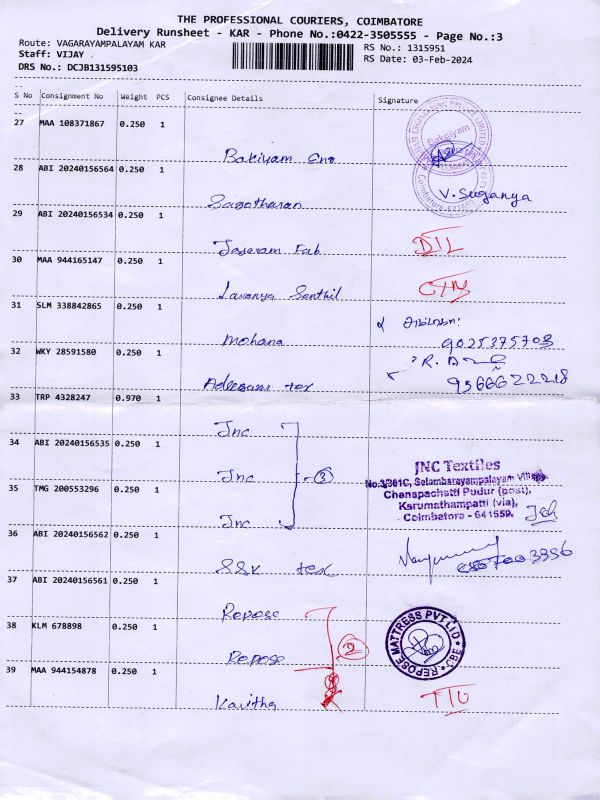 THE PROFESSIONAL COURIERS, COIMBATORE
Delivery Runsheet - KAR - Phone No.:0422-3505555 - Page No.:3
Route: VAGARAYAMPALAYAM KAR
RS No.: 1315951
Staff: VIJAY
RS Date: 03-Feb-2024
DRS No.: DCJB131595103
S No Consignment No Weight PCS Consignee Details Signature
27 MAA 108371867 0.250 1
Bakiyam Eng
28 ABI 20240156564 0.250 1
V. Suganya
Sagotharan
29 ABI 20240156534 0.250 1
Jayaram Fab DIL
30 MAA 944165147 0.250 1
Lavanya Senthil
31 SLM 338842865 0.250 1
Mohana 9025375703
32 WKY 28591580 0.250 1
tex 9566622218
33 TRP 4328247 0.970 1
Jnc
34 ABI 20240156535 0.250 1
Jnc 3
JNC Textiles
No.3/381C, Selambarayampalayam Village,
35 TMG 200553296 0.250 1
Chenapachatti Pudur (post),
Karumathampatti (via),
Coimbatore - 641659.
Jnc
36 ABI 20240156562 0.250 1
SSK tex
37 ABI 20240156561 0.250 1
Repose
38 KLM 678898 0.250 1
Repose 2
REPOSE MATTRESS PVT LTD CBE
39 MAA 944154878 0.250 1
Kavitha